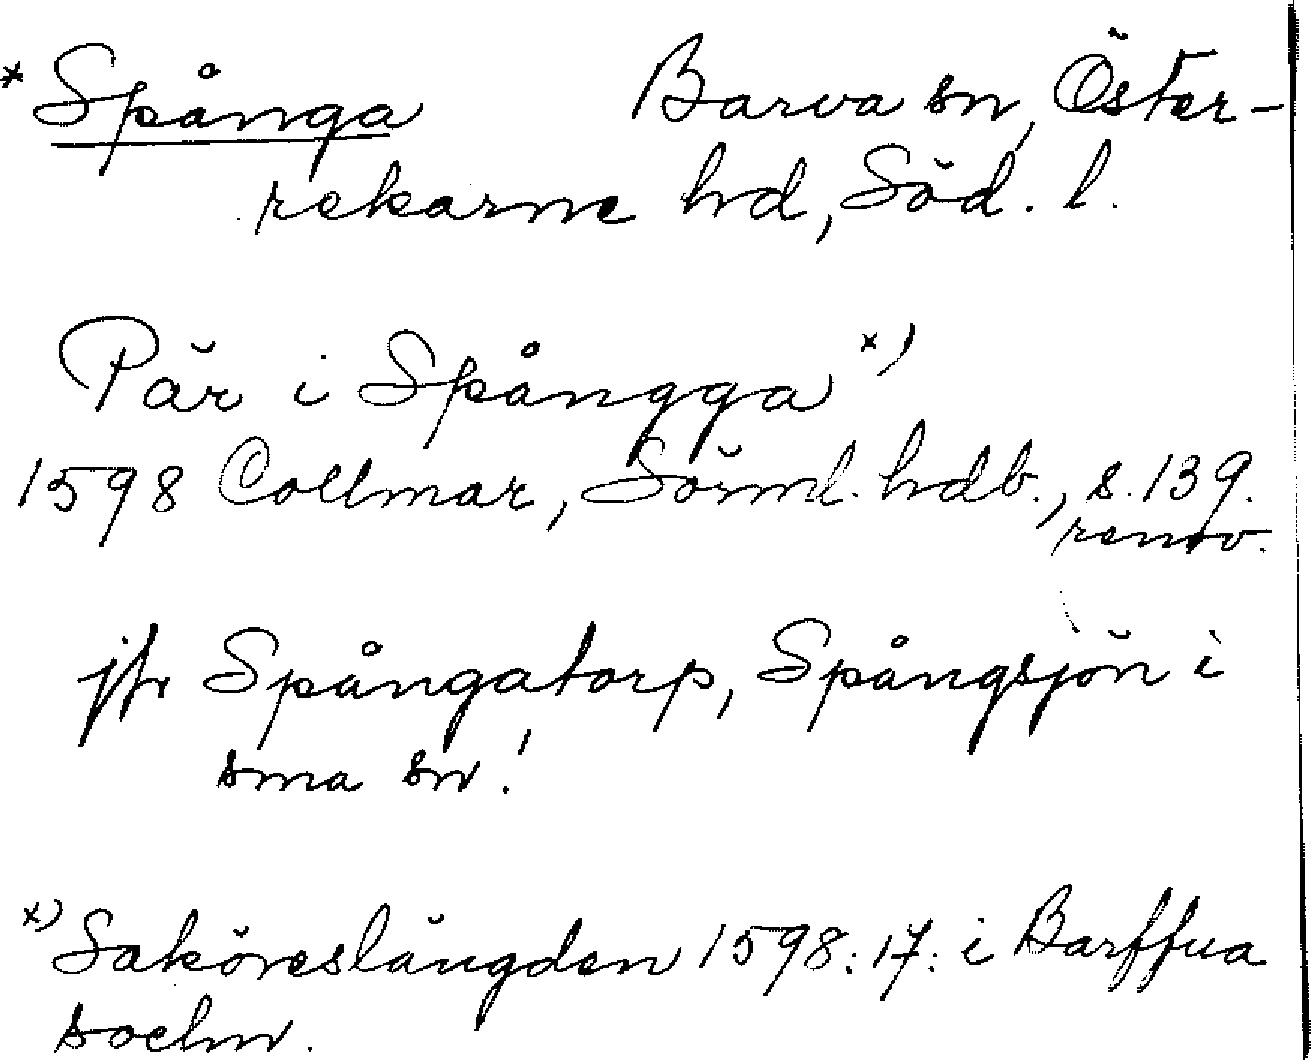 * Spånga Barva sn, Öster-
rekarne hd, Söd. l.
Pär i Spångga x)
1598 Collmar, Sörml. hdb., s. 139.
renov.
jfr Spångatorp, Spångsjön i
sma sn!
x) Saköreslängden 1598:17: i Barffua
sochn.